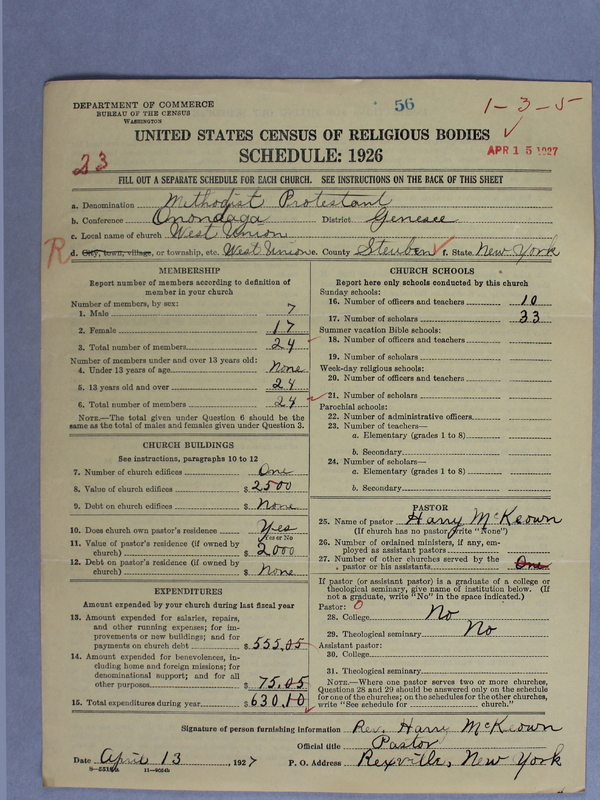 DEPARTMENT OF COMMERCE
BUREAU OF THE CENSUS
WASHINGTON
56
1-3-5
UNITED STATES CENSUS OF RELIGIOUS BODIES
SCHEDULE: 1926
APR 15 1927
23
FILL OUT A SEPARATE SCHEDULE FOR EACH CHURCH. SEE INSTRUCTIONS ON THE BACK OF THIS SHEET
a. Denomination Methodist Protestant
b. Conference Onondaga District Genesee
c. Local name of church West Union
R d. City, town, village, or township, etc. West Union e. County Steuben f. State New York
MEMBERSHIP
Report number of members according to definition of
member in your church
Number of members, by sex:
1. Male 7
2. Female 17
3. Total number of members 24
Number of members under and over 13 years old:
4. Under 13 years of age None
5. 13 years old and over 24
6. Total number of members 24
NOTE.—The total given under Question 6 should be the
same as the total of males and females given under Question 3.
CHURCH BUILDINGS
See instructions, paragraphs 10 to 12
7. Number of church edifices One
8. Value of church edifices $ 2500
9. Debt on church edifices $ None
10. Does church own pastor's residence Yes
Yes or No
11. Value of pastor's residence (if owned by
church) $ 2000
12. Debt on pastor's residence (if owned by
church) $ None
EXPENDITURES
Amount expended by your church during last fiscal year
13. Amount expended for salaries, repairs,
and other running expenses; for im-
provements or new buildings; and for
payments on church debt $ 555.05
14. Amount expended for benevolences, in-
cluding home and foreign missions; for
denominational support; and for all
other purposes $ 75.05
15. Total expenditures during year $ 630.10
CHURCH SCHOOLS
Report here only schools conducted by this church
Sunday schools:
16. Number of officers and teachers 10
17. Number of scholars 33
Summer vacation Bible schools:
18. Number of officers and teachers
19. Number of scholars
Week-day religious schools:
20. Number of officers and teachers
21. Number of scholars
Parochial schools:
22. Number of administrative officers
23. Number of teachers—
a. Elementary (grades 1 to 8)
b. Secondary
24. Number of scholars—
a. Elementary (grades 1 to 8)
b. Secondary
PASTOR
25. Name of pastor Harry McKeown
(If church has no pastor write "None")
26. Number of ordained ministers, if any, em-
ployed as assistant pastors
27. Number of other churches served by the
pastor or his assistants One
If pastor (or assistant pastor) is a graduate of a college or
theological seminary, give name of institution below. (If
not a graduate, write "No" in the space indicated.)
Pastor: 0
28. College No
29. Theological seminary No
Assistant pastor:
30. College
31. Theological seminary
NOTE.—Where one pastor serves two or more churches,
Questions 28 and 29 should be answered only on the schedule
for one of the churches; on the schedules for the other churches,
write "See schedule for church."
Signature of person furnishing information Rev. Harry McKeown
Official title Pastor
Date April 13, 1927 P. O. Address Rexville, New York